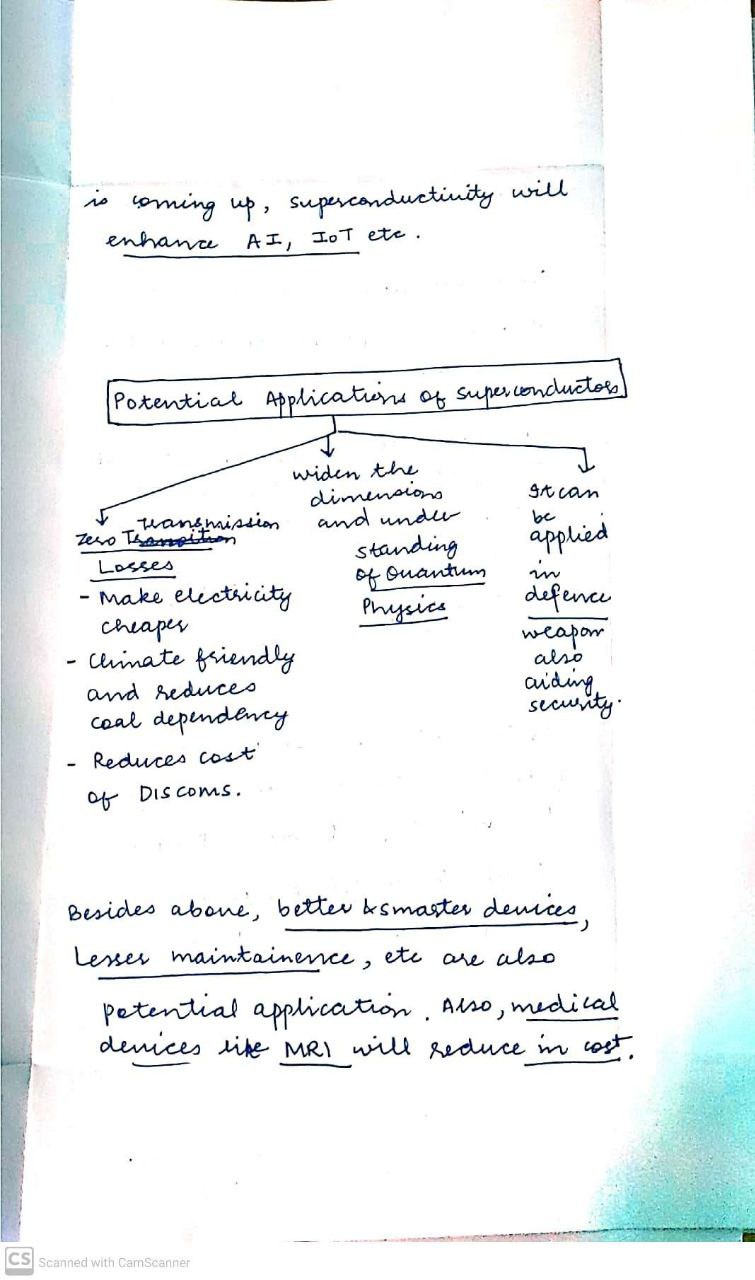 is coming up, superconductivity will
enhance AI, IoT etc.
Potential Applications of superconductors
transmission
Zero Transition
Losses
- Make electricity
cheaper
- Climate friendly
and reduces
coal dependency
- Reduces cost
of DISCOMS.
widen the
dimensions
and under
standing
of Quantum
Physics
It can
be
applied
in
defence
weapon
also
aiding
security.
Besides above, better & smarter devices,
Lesser maintainence, etc are also
potential application. Also, medical
devices like MRI will reduce in cost.
CS Scanned with CamScanner